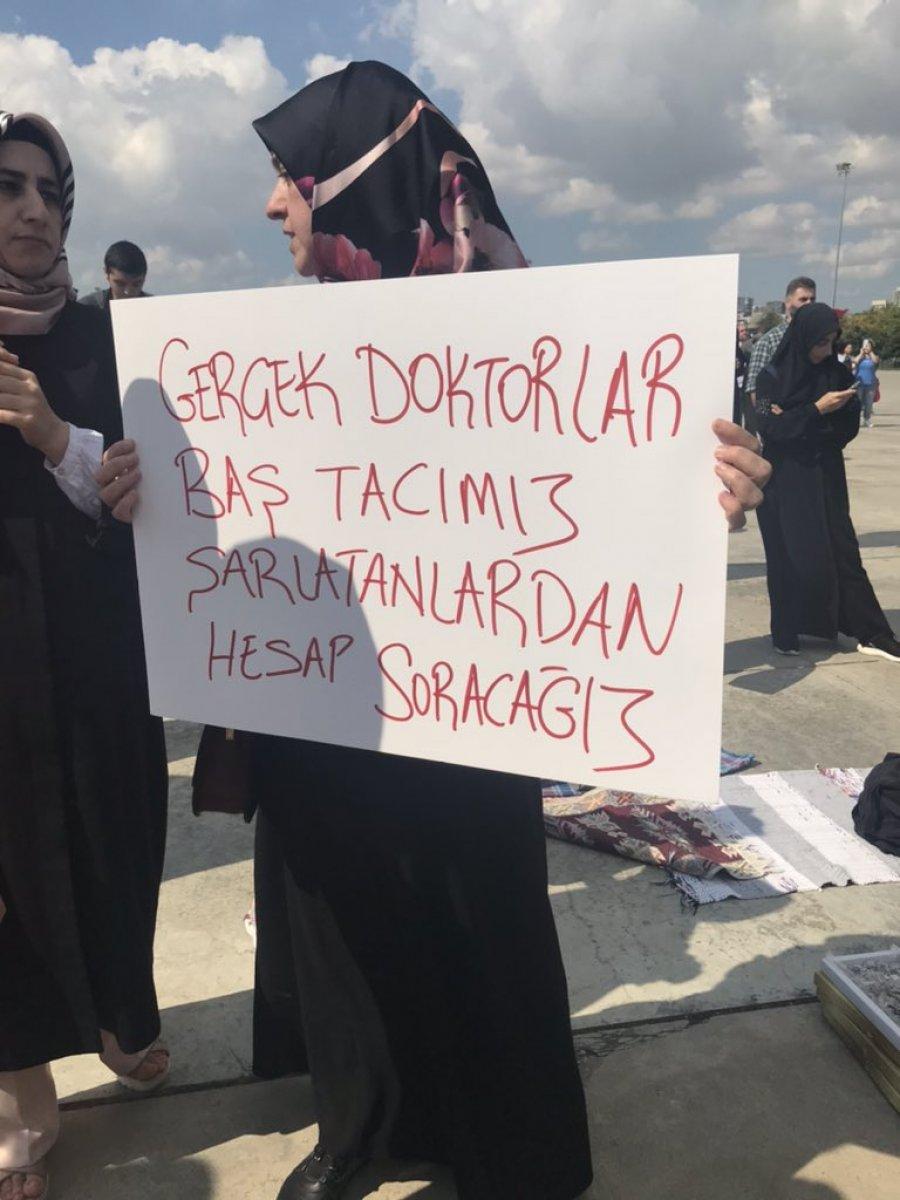 GERÇEK DOKTORLAR
BAŞ TACIMIZ
ŞARLATANLARDAN
HESAP SORACAĞIZ